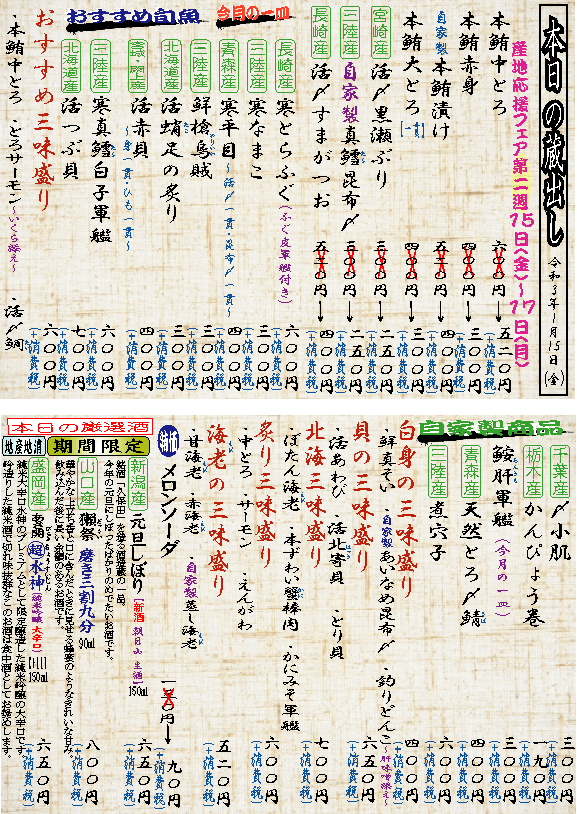 本日の蔵出し
令和3年1月15日(金)
産地応援フェア第二週15日(金)～17日(月)
本鮪中とろ 六〇〇円→五二〇円(+消費税)
本鮪赤身 四〇〇円→三〇〇円(+消費税)
自家製本鮪漬け 五〇〇円→四〇〇円(+消費税)
本鮪大とろ【一貫】 四〇〇円→三〇〇円(+消費税)
宮崎産 活〆黒瀬ぶり 三〇〇円→二五〇円(+消費税)
三陸産 自家製真鱈昆布〆 三〇〇円→二五〇円(+消費税)
長崎産 活〆すまがつお 五〇〇円→四〇〇円(+消費税)
今月の一皿
長崎産 寒とらふぐ(ふぐ皮軍艦付き) 六〇〇円(+消費税)
三陸産 寒なまこ 三〇〇円(+消費税)
青森産 寒平目～活〆一貫・昆布〆一貫～ 四〇〇円(+消費税)
おすすめ旬魚
三陸産 鮮槍烏賊 三〇〇円(+消費税)
北海道産 活蛸足の炙り 三〇〇円(+消費税)
活赤貝～身一貫・ひも一貫～ 四〇〇円(+消費税)
三陸産 寒真鱈白子軍艦 六〇〇円(+消費税)
北海道産 活つぶ貝 七〇〇円(+消費税)
おすすめ三味盛り 六〇〇円(+消費税)
・本鮪中とろ ・とろサーモン～いくら添え～ ・活〆鯛
自家製商品
千葉産 〆小肌 三〇〇円(+消費税)
栃木産 かんぴょう巻 一九〇円(+消費税)
鮟肝軍艦(今月の一皿) 三〇〇円(+消費税)
青森産 天然とろ〆鯖 四〇〇円(+消費税)
三陸産 煮穴子 四〇〇円(+消費税)
白身の三味盛り 六五〇円(+消費税)
・鮮真そい ・自家製あいなめ昆布〆 ・釣りどんこ～肝味噌添え～
貝の三味盛り 七〇〇円(+消費税)
・活あわび ・活北寄貝 ・とり貝
北海三味盛り 六〇〇円(+消費税)
・ぼたん海老 ・本ずわい蟹棒肉 ・かにみそ軍艦
炙り三味盛り 五二〇円(+消費税)
・中とろ ・サーモン ・えんがわ
海老の三味盛り
・甘海老 ・赤海老 ・自家製蒸し海老
特価 メロンソーダ →九〇円(+消費税)
本日の厳選酒
地産地消 期間限定
新潟産 元旦しぼり【新酒 朝日山 生酒】150ml 六五〇円(+消費税)
銘酒「久保田」を造る酒造蔵の一品。
今年の元旦にしぼったばかりのめでたいお酒です。
山口産 獺祭 磨き三割九分 90ml 八〇〇円(+消費税)
華やかな上立ち香と口に含んだときに見せる蜂蜜のようなきれいな甘み。
飲み込んだ後に長い余韻のあるお酒です。
盛岡産 老師 超水神(純米吟醸 大辛口) 150ml 六五〇円(+消費税)
純米大辛口水神のプレミアムとして限定醸造した純米吟醸の大辛口です。
吟造りした純米酒で切れ味抜群なこのお酒は食中酒としてお奨めします。